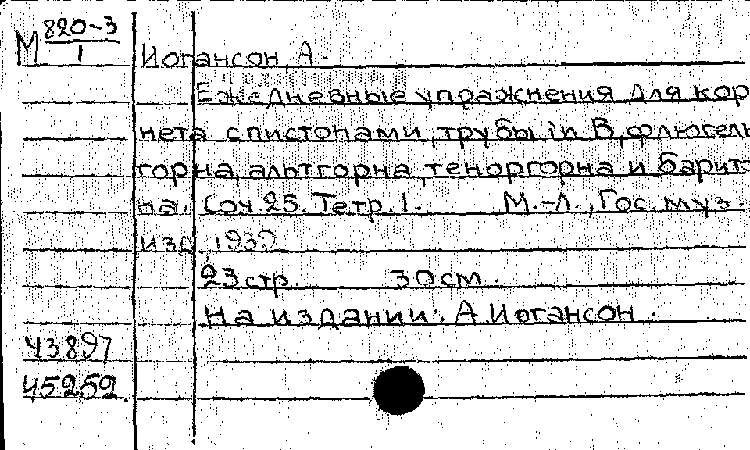 М 820-3
1
Иогансон А.
Ежедневные упражнения для кор
нета с пистонами, трубы in B, флюгель
горна, альтгорна, теноргорна и барито
на. Соч. 25. Тетр. 1. М.-Л., Гос. муз.
изд., 1939
23 стр. 30 см.
На издании: А. Иогансон.
43897
45252.